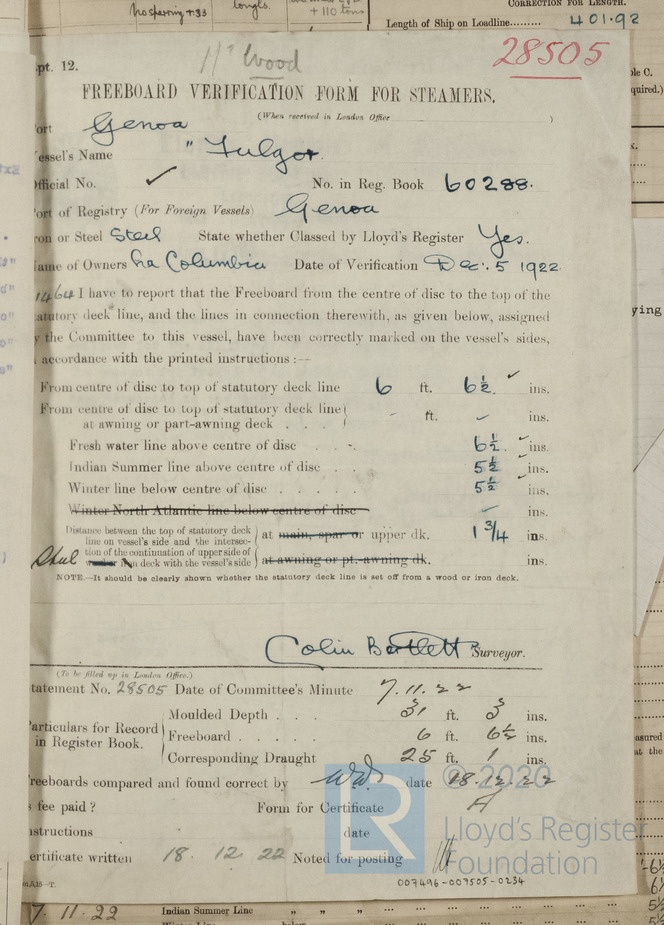 No sparring + 33
longls.
+ 110 tons
CORRECTION FOR LENGTH.
Length of Ship on Loadline......... 401.92
pt. 12.
11" Wood
28505
FREEBOARD VERIFICATION FORM FOR STEAMERS.
(When received in London Office )
ort Genoa
essel's Name "Fulgor.
fficial No. ✓ No. in Reg. Book 60288.
ort of Registry (For Foreign Vessels) Genoa
ron or Steel Steel State whether Classed by Lloyd's Register Yes.
ame of Owners La Columbia Date of Verification Dec. 5 1922.
1464 I have to report that the Freeboard from the centre of disc to the top of the
tatutory deck line, and the lines in connection therewith, as given below, assigned
y the Committee to this vessel, have been correctly marked on the vessel's sides,
accordance with the printed instructions :—
From centre of disc to top of statutory deck line 6 ft. 6½ ins.
From centre of disc to top of statutory deck line
at awning or part-awning deck . . . - ft. - ins.
Fresh water line above centre of disc . . . 6½ ins.
Indian Summer line above centre of disc . . 5½ ins.
Winter line below centre of disc . . . . . 5½ ins.
Winter North Atlantic line below centre of disc - ins.
Distance between the top of statutory deck
line on vessel's side and the intersec-
tion of the continuation of upper side of
Steel wooden iron deck with the vessel's side
at main, spar or upper dk. 1 3/4 ins.
at awning or pt.-awning dk. ins.
NOTE.—It should be clearly shown whether the statutory deck line is set off from a wood or iron deck.
Colin Bartlett Surveyor.
(To be filled up in London Office.)
tatement No. 28505 Date of Committee's Minute 7.11.22
articulars for Record
in Register Book.
Moulded Depth . . . 31 ft. 3 ins.
Freeboard . . . . . 6 ft. 6½ ins.
Corresponding Draught 25 ft. 1 ins.
reeboards compared and found correct by date 18.12.22
s fee paid ? Form for Certificate A
nstructions date
ertificate written 18. 12. 22 Noted for posting
© 2020
R
Lloyd's Register
Foundation
007496-007505-0234
7.11.22 Indian Summer Line " " "